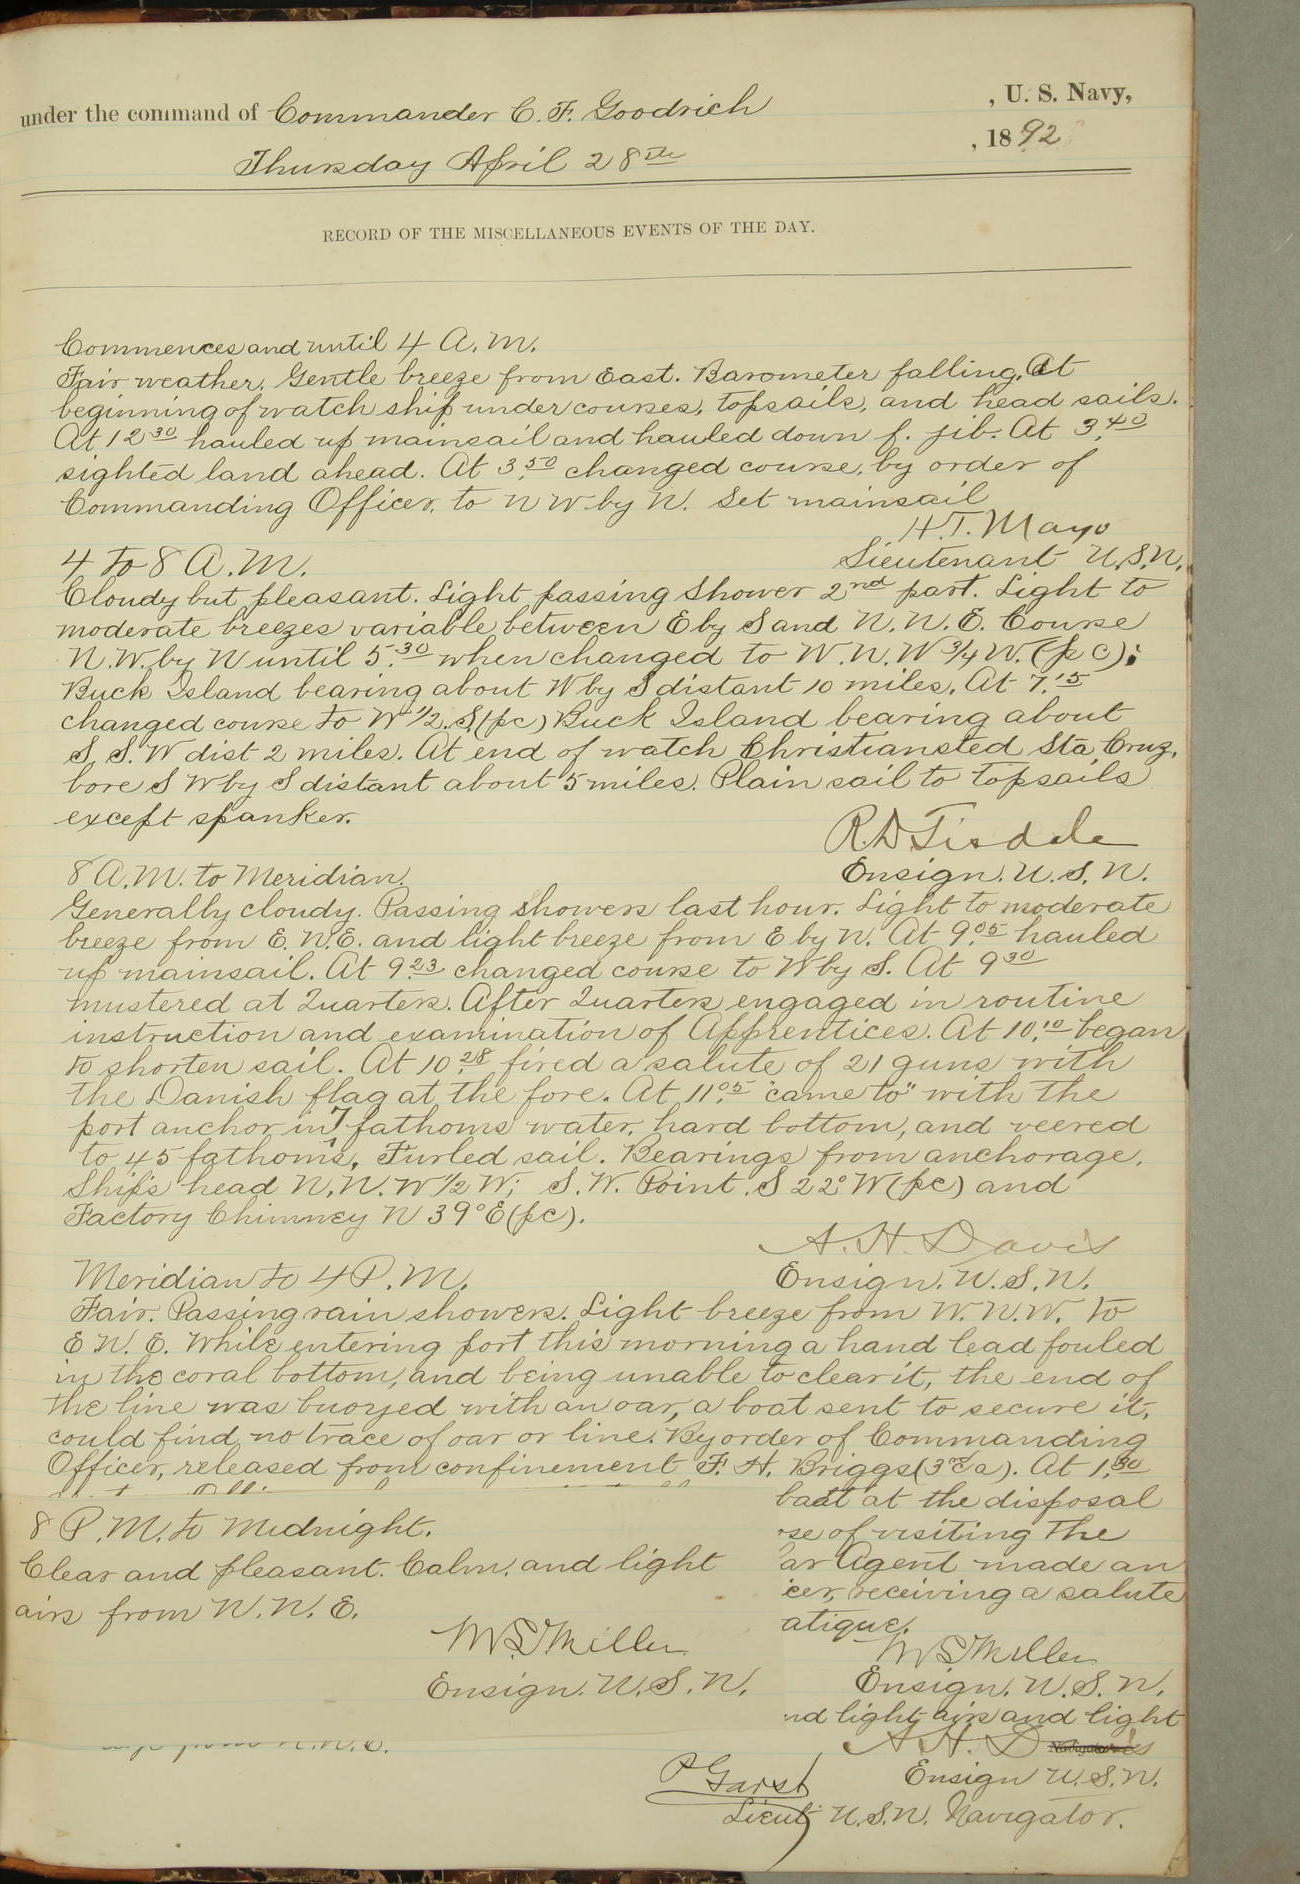 under the command of Commander C. F. Goodrich , U. S. Navy,
Thursday April 28th , 1892
RECORD OF THE MISCELLANEOUS EVENTS OF THE DAY.
Commences and until 4 A.M.
Fair weather. Gentle breeze from East. Barometer falling. At
beginning of watch ship under courses, topsails, and head sails.
At 12.30 hauled up mainsail and hauled down f. jib. At 3.40
sighted land ahead. At 3.50 changed course, by order of
Commanding Officer, to N W by N. Set mainsail
H.T. Mayo
Lieutenant U.S.N.
4 to 8 A.M.
Cloudy but pleasant. Light passing shower 2nd part. Light to
moderate breezes variable between E by S and N.N.E. Course
N.W. by N until 5.30 when changed to W.N.W 3/4 W. (p c);
Buck Island bearing about W by S distant 10 miles. At 7.15
changed course to W 1/2 S. (pc) Buck Island bearing about
S. S. W dist 2 miles. At end of watch Christiansted Sta Cruz,
bore S W by S distant about 5 miles. Plain sail to topsails
except spanker.
R.D. Tisdale
Ensign. U.S.N.
8 A.M. to Meridian.
Generally cloudy. Passing showers last hour. Light to moderate
breeze from E.N.E. and light breeze from E by N. At 9.05 hauled
up mainsail. At 9.23 changed course to W by S. At 9 30
mustered at Quarters. After Quarters engaged in routine
instruction and examination of Apprentices. At 10.10 began
to shorten sail. At 10.28 fired a salute of 21 guns with
the Danish flag at the fore. At 11.05 "came to" with the
port anchor in 7 fathoms water, hard bottom, and veered
to 45 fathoms, Furled sail. Bearings from anchorage.
Ship's head N.N.W 1/2 W; S.W. Point. S 22° W (pc) and
Factory Chimney N 39° E (pc).
A. H. Davis
Ensign. U.S.N.
Meridian to 4 P.M.
Fair. Passing rain showers. Light breeze from W.N.W. to
E N. E. While entering port this morning a hand lead fouled
in the coral bottom, and being unable to clear it, the end of
the line was buoyed with an oar, a boat sent to secure it,
could find no trace of oar or line. By order of Commanding
Officer, released from confinement F. H. Briggs (3rd c a). At 1.30
boat at the disposal
se of visiting the
ar Agent made an
icer, receiving a salute
atique.
W S Miller
Ensign. U.S.N.
nd light airs and light
8 P.M. to Midnight.
Clear and pleasant. Calm, and light
airs from N.N.E.
W S Miller
Ensign. U.S.N.
from N.N.E.
A. H. Davis
Ensign U.S.N.
P Garst
Lieut U.S.N. Navigator.